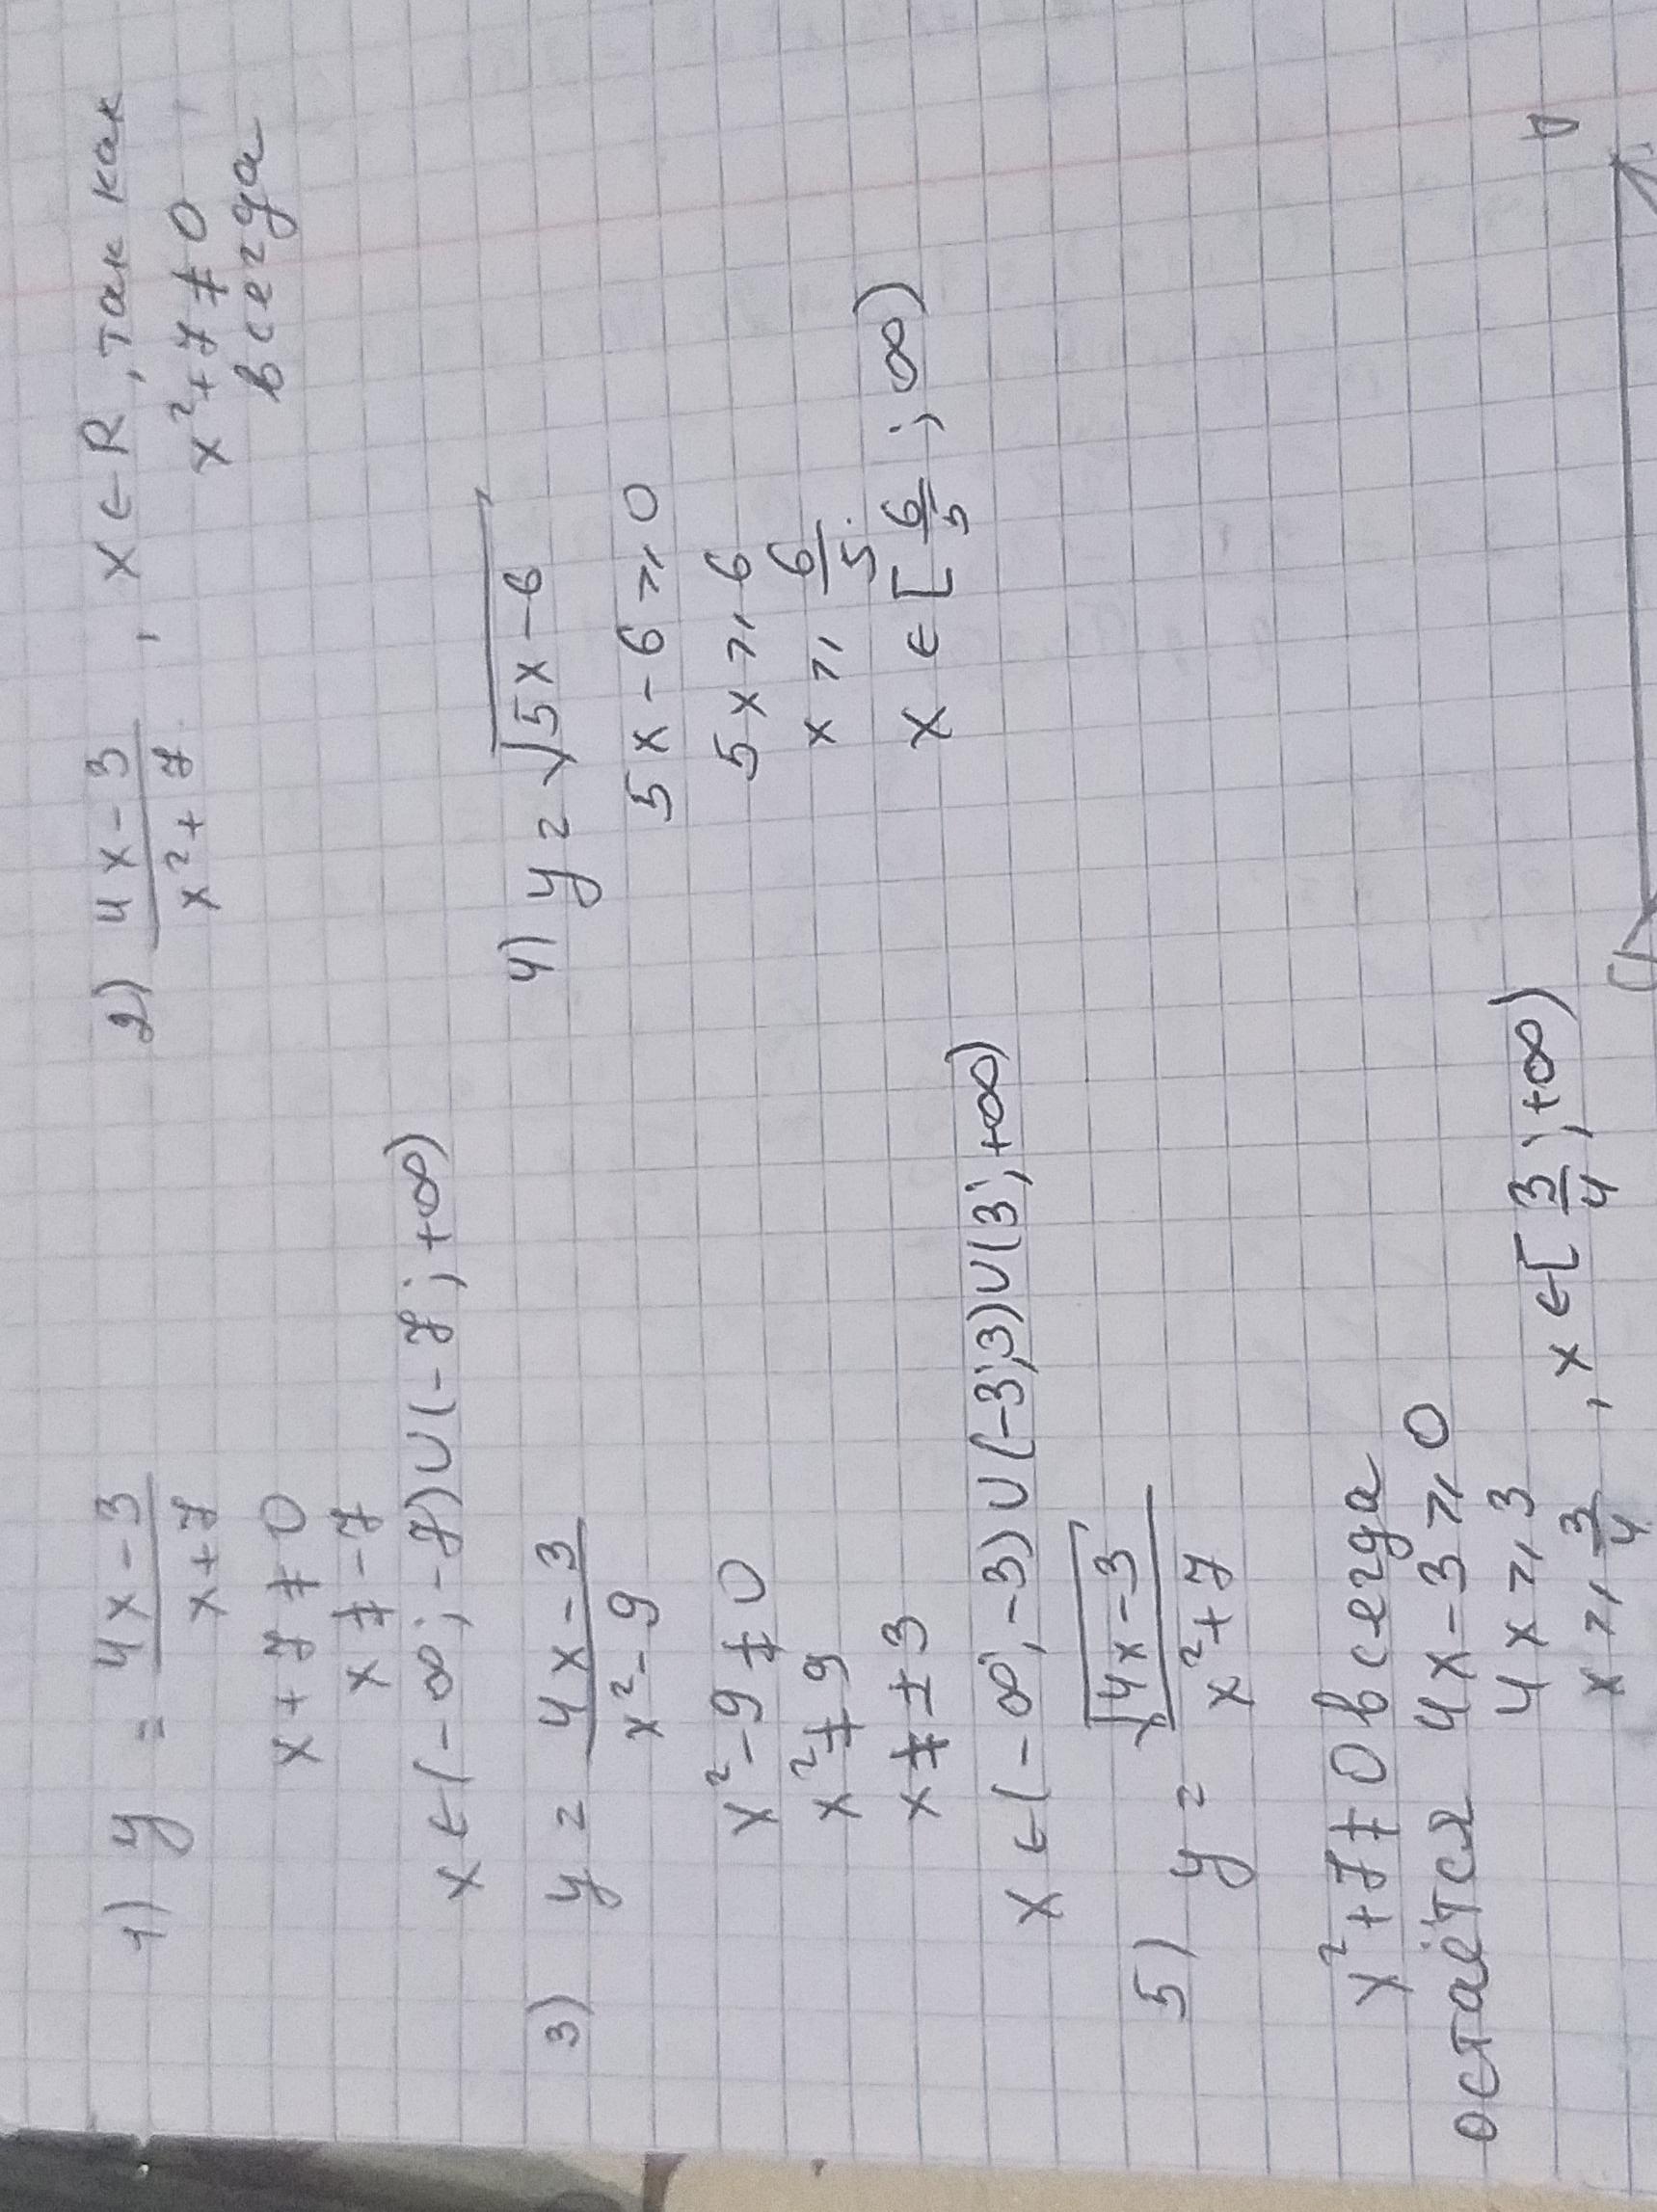 1) y = (4x-3)/(x+7)
x+7≠0
x≠-7
x∈(-∞;-7)∪(-7;+∞)
2) (4x-3)/(x²+7), x∈R, так как
x²+7≠0
всегда
3) y = (4x-3)/(x²-9)
x²-9≠0
x²≠9
x≠±3
x∈(-∞;-3)∪(-3;3)∪(3;+∞)
4) y = √(5x-6)
5x-6⩾0
5x⩾6
x⩾6/5
x∈[6/5;∞)
5) y = √(4x-3)/(x²+7)
x²+7≠0 всегда
остаётся 4x-3⩾0
4x⩾3
x⩾3/4, x∈[3/4;+∞)